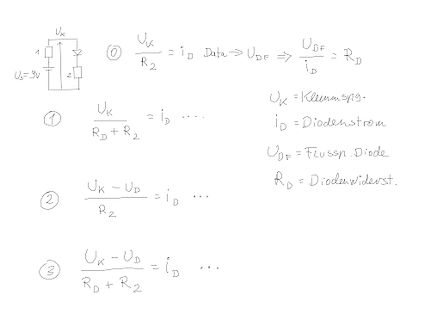 U_K
1
2
U_0=9V
⓪ U_K / R_2 = i_D Data ⇒ U_DF ⇒ U_DF / i_D = R_D
U_K = Klemmspg.
i_D = Diodenstrom
U_DF = Flussp. Diode
R_D = Diodenwiderst.
① U_K / (R_D + R_2) = i_D ....
② (U_K - U_D) / R_2 = i_D ...
③ (U_K - U_D) / (R_D + R_2) = i_D ...